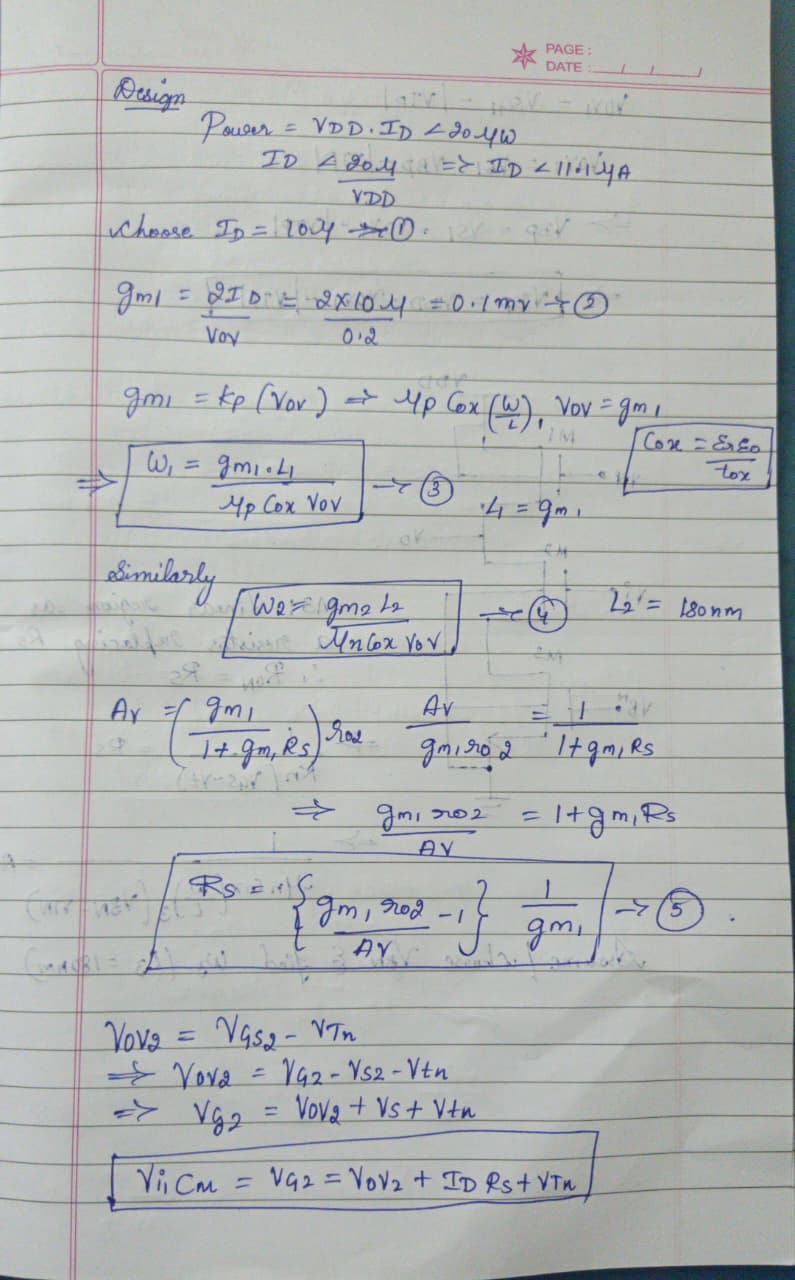 PAGE :
DATE : / / /
Design
Power = VDD . ID < 20 μW
ID < 20μ/VDD => ID < 11.1 μA
choose ID = 10μ → ①.
gm1 = 2ID/Vov = 2×10μ/0.2 = 0.1mv → ②
gm1 = kp (Vov) => μp Cox (W/L)1 Vov = gm1
Cox = εrε0/tox
=> W1 = gm1.L1/μp Cox Vov → ③
L1 = gm1
Similarly
W2 = gm2 L2/μn Cox Vov → ④ L2 = 180nm
Av = (gm1/1+gm1Rs) ro2 Av/gm1ro2 = 1/1+gm1Rs
=> gm1 ro2/Av = 1+gm1Rs
Rs = {gm1 ro2/Av -1} 1/gm1 → ⑤.
Vov2 = VGS2 - VTn
=> Vov2 = VG2 - VS2 - Vtn
=> Vg2 = Vov2 + Vs + Vtn
Vi,Cm = VG2 = Vov2 + ID Rs + VTn